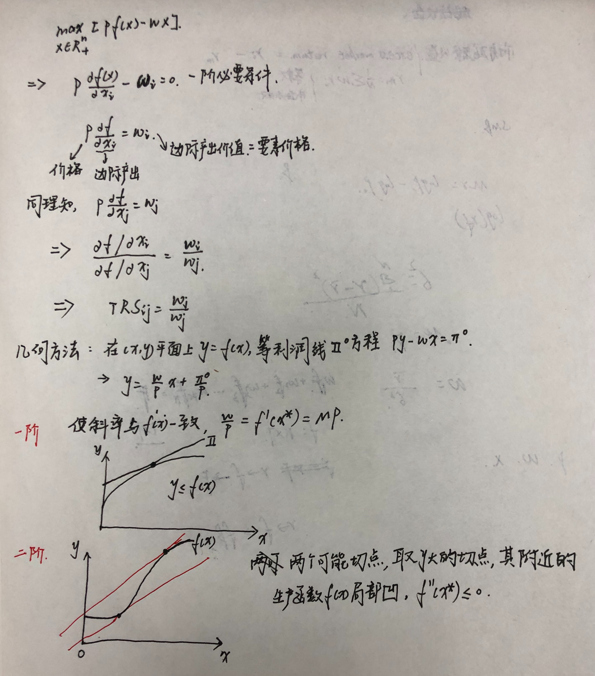 max [pf(x)-wx].
x∈R₊ⁿ
⇒ p ∂f(x)/∂xᵢ - wᵢ=0. 一阶必要条件.
p ∂f/∂xᵢ = wᵢ. 边际产出价值=要素价格.
价格 边际产出
同理知, p ∂f/∂xⱼ = wⱼ
⇒ (∂f/∂xᵢ)/(∂f/∂xⱼ) = wᵢ/wⱼ.
⇒ TRSᵢⱼ = wᵢ/wⱼ
几何方法: 在(x,y)平面上 y=f(x), 等利润线Π°方程 py-wx=π°.
→ y = w/p x + π°/p.
一阶 使斜率与f'(x)一致, w/p = f'(x*) = MP.
y Π
y≤f(x)
x
二阶. y f(x)
两个可能切点, 取y大的切点, 其附近的
生产函数f(x)局部凹, f''(x*)≤0.
0 x